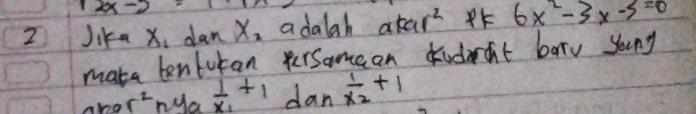 2x-5
2 Jika x₁ dan x₂ adalah akar² PK 6x²-3x-5=0
maka tentukan persamaan kudrat baru yang
akar²nya 1/x₁ +1 dan 1/x₂ +1